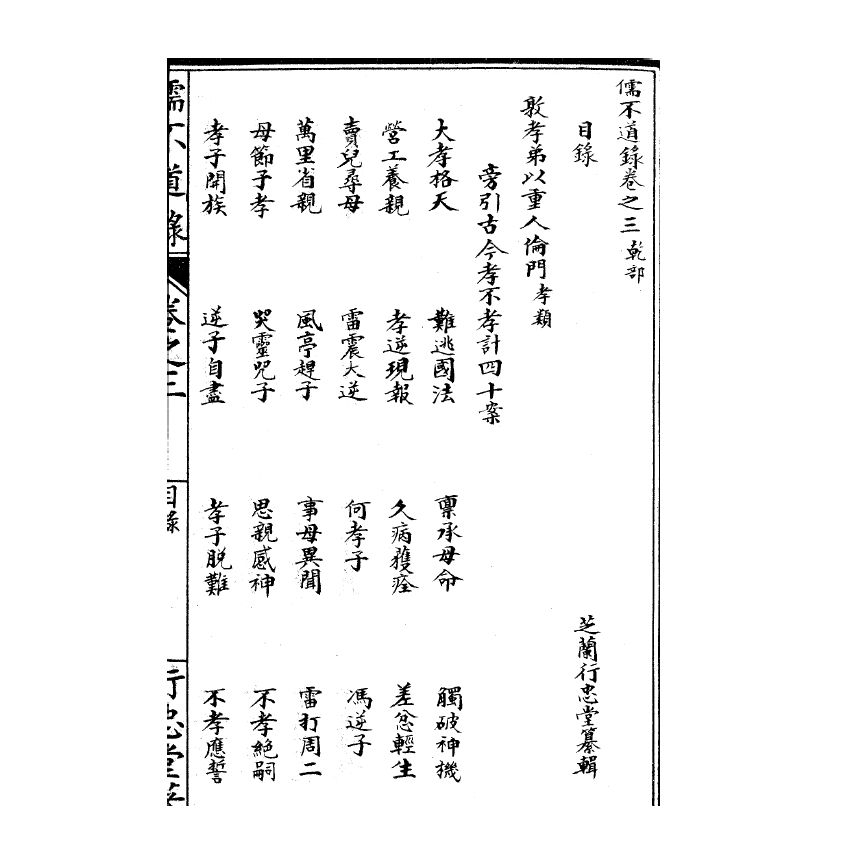 儒不道錄卷之三 乾部
目錄 芝蘭行忠堂纂輯
敦孝弟以重人倫門 孝類
旁引古今孝不孝計四十案
大孝格天 難逃國法 稟承母命 觸破神機
營工養親 孝逆現報 久病獲痊 差忿輕生
賣兒尋母 雷震大逆 何孝子 馮逆子
萬里省親 風亭趕子 事母異聞 雷打周二
母節子孝 哭靈咒子 思親感神 不孝絶嗣
孝子開族 逆子自盡 孝子脫難 不孝應誓
儒不道錄 卷之三 目錄 行忠堂